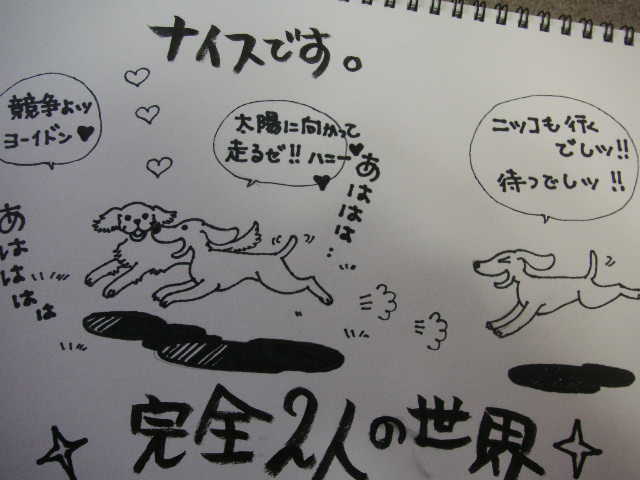 ナイスです。
競争よッ
ヨーイドン♥
太陽に向かって
走るぜ!!ハニー♥
あははは…
ニッコも行く
でしッ!!
待つでしッ!!
あはははは
完全2人の世界